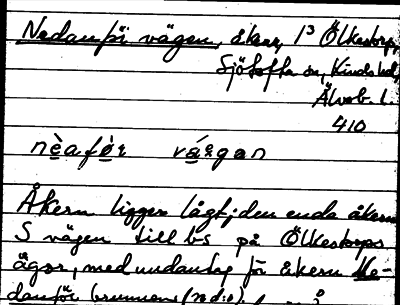 Nedanför vägen, åker, 1³ Ölkestorp,
Sjötofta sn, Kinds hd,
Älvsb. l.
410
nèafòr vágan
Åkern ligger lågt; den enda åkern
S vägen till bs på Ölkestorps
ägor, med undantag för åkern Ne-
danför brunnen